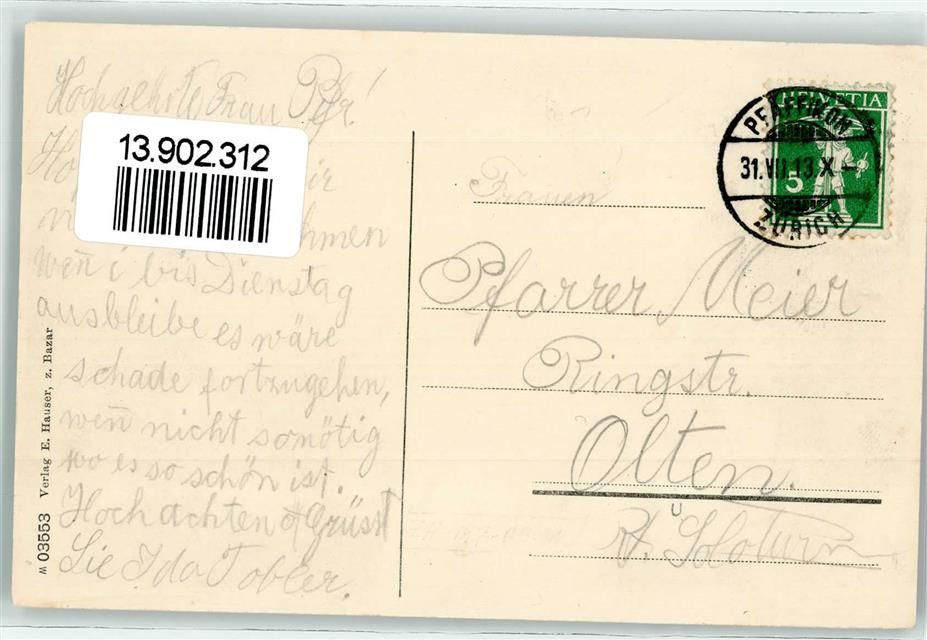 Hochgeehrte Frau Pfr!
13.902.312
hmen
weñ i bis Dienstag
ausbleibe es wäre
schade fortzugehen,
weñ nicht so nötig
wo es so schön ist.
Hochachtend Grüsst
Sie Ida Tobler.
W 03553 Verlag E. Hauser, z. Bazar
HELVETIA
5
PFÄFFIKON
31.VII.13.X-
ZÜRICH
Frauen
Pfarrer Meier
Ringstr.
Olten.
Kt. Soloturn